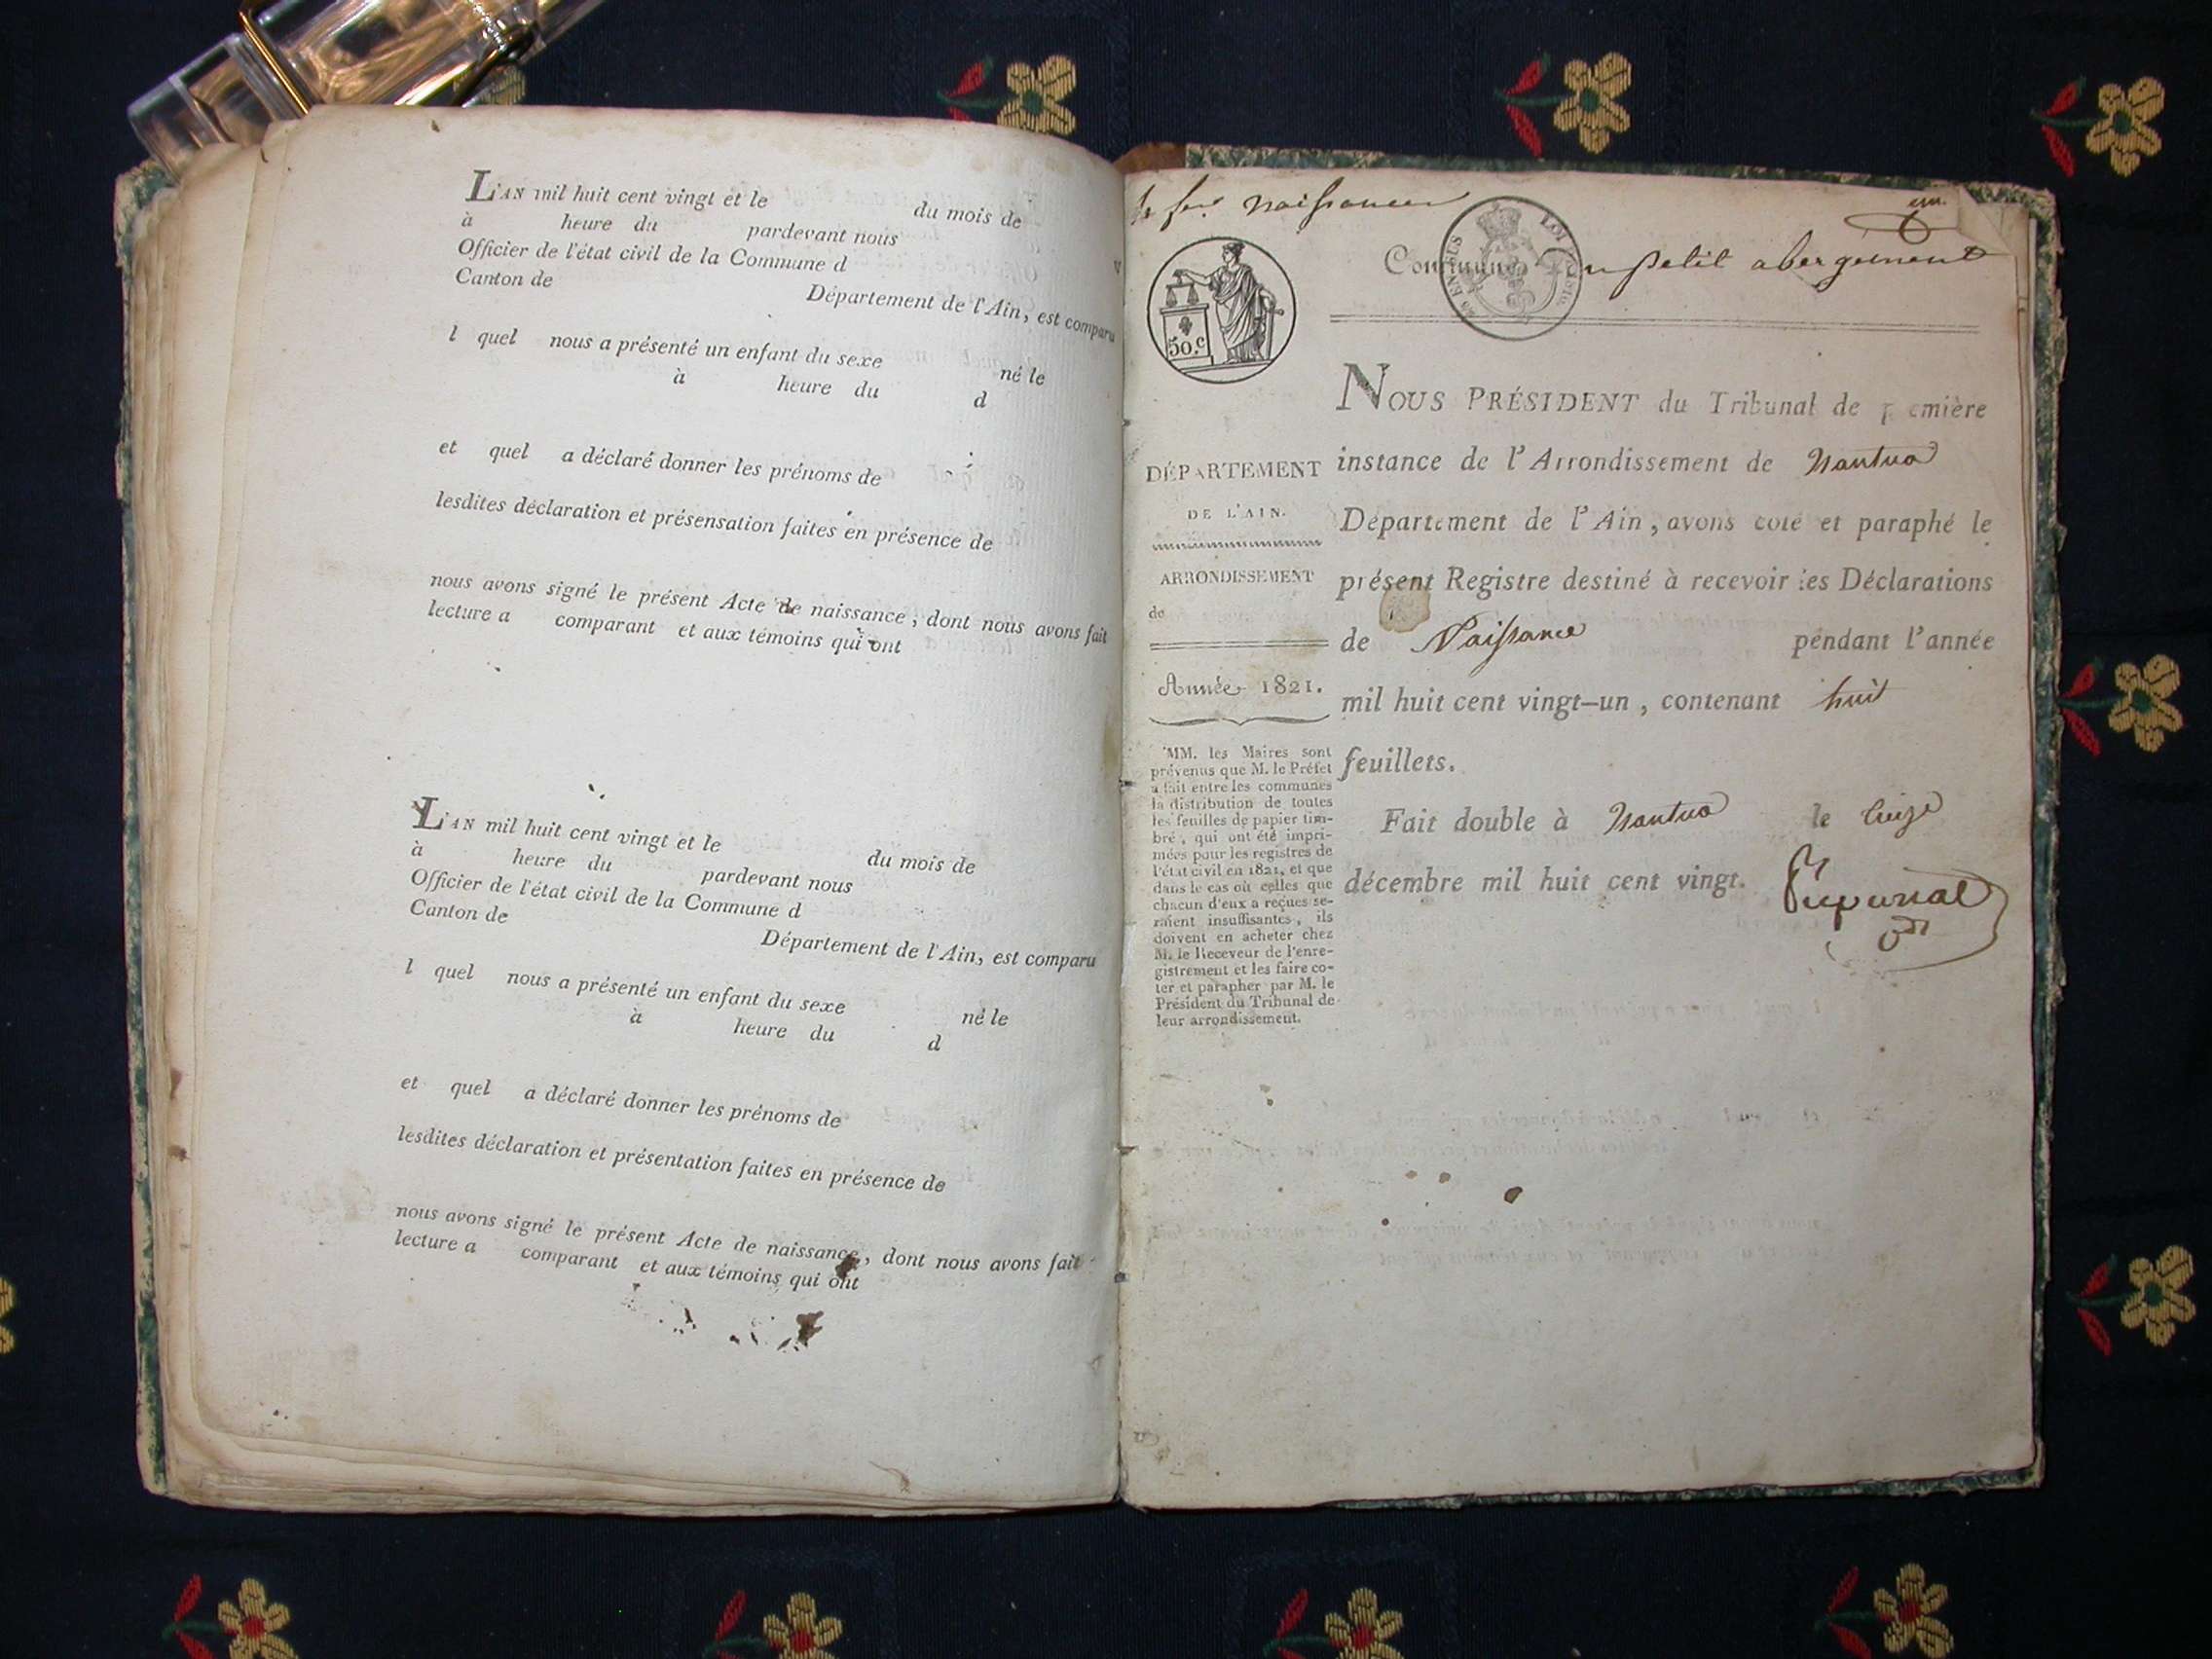 L'AN mil huit cent vingt et le du mois de
à heure du pardevant nous
Officier de l'état civil de la Commune d
Canton de Département de l'Ain, est comparu
l quel nous a présenté un enfant du sexe né le
à heure du d
et quel a déclaré donner les prénoms de
lesdites déclaration et présensation faites en présence de
nous avons signé le présent Acte de naissance, dont nous avons fait
lecture a comparant et aux témoins qui ont
L'AN mil huit cent vingt et le du mois de
à heure du pardevant nous
Officier de l'état civil de la Commune d
Canton de Département de l'Ain, est comparu
l quel nous a présenté un enfant du sexe né le
à heure du d
et quel a déclaré donner les prénoms de
lesdites déclaration et présentation faites en présence de
nous avons signé le présent Acte de naissance, dont nous avons fait
lecture a comparant et aux témoins qui ont
naissances
un
50.c
LOI
EN SUS
Commune petit abergement
DÉPARTEMENT
DE L'AIN.
ARRONDISSEMENT
de
Année 1821.
MM. les Maires sont
prévenus que M. le Préfet
a fait entre les communes
la distribution de toutes
les feuilles de papier tim-
bré, qui ont été impri-
mées pour les registres de
l'état civil en 1821, et que
dans le cas où celles que
chacun d'eux a reçues se-
raient insuffisantes, ils
doivent en acheter chez
M. le Receveur de l'enre-
gistrement et les faire co-
ter et parapher par M. le
Président du Tribunal de
leur arrondissement.
NOUS PRÉSIDENT du Tribunal de première
instance de l'Arrondissement de Nantua
Département de l'Ain, avons coté et paraphé le
présent Registre destiné à recevoir les Déclarations
de Naissance pendant l'année
mil huit cent vingt-un, contenant huit
feuillets.
Fait double à Nantua le
décembre mil huit cent vingt.